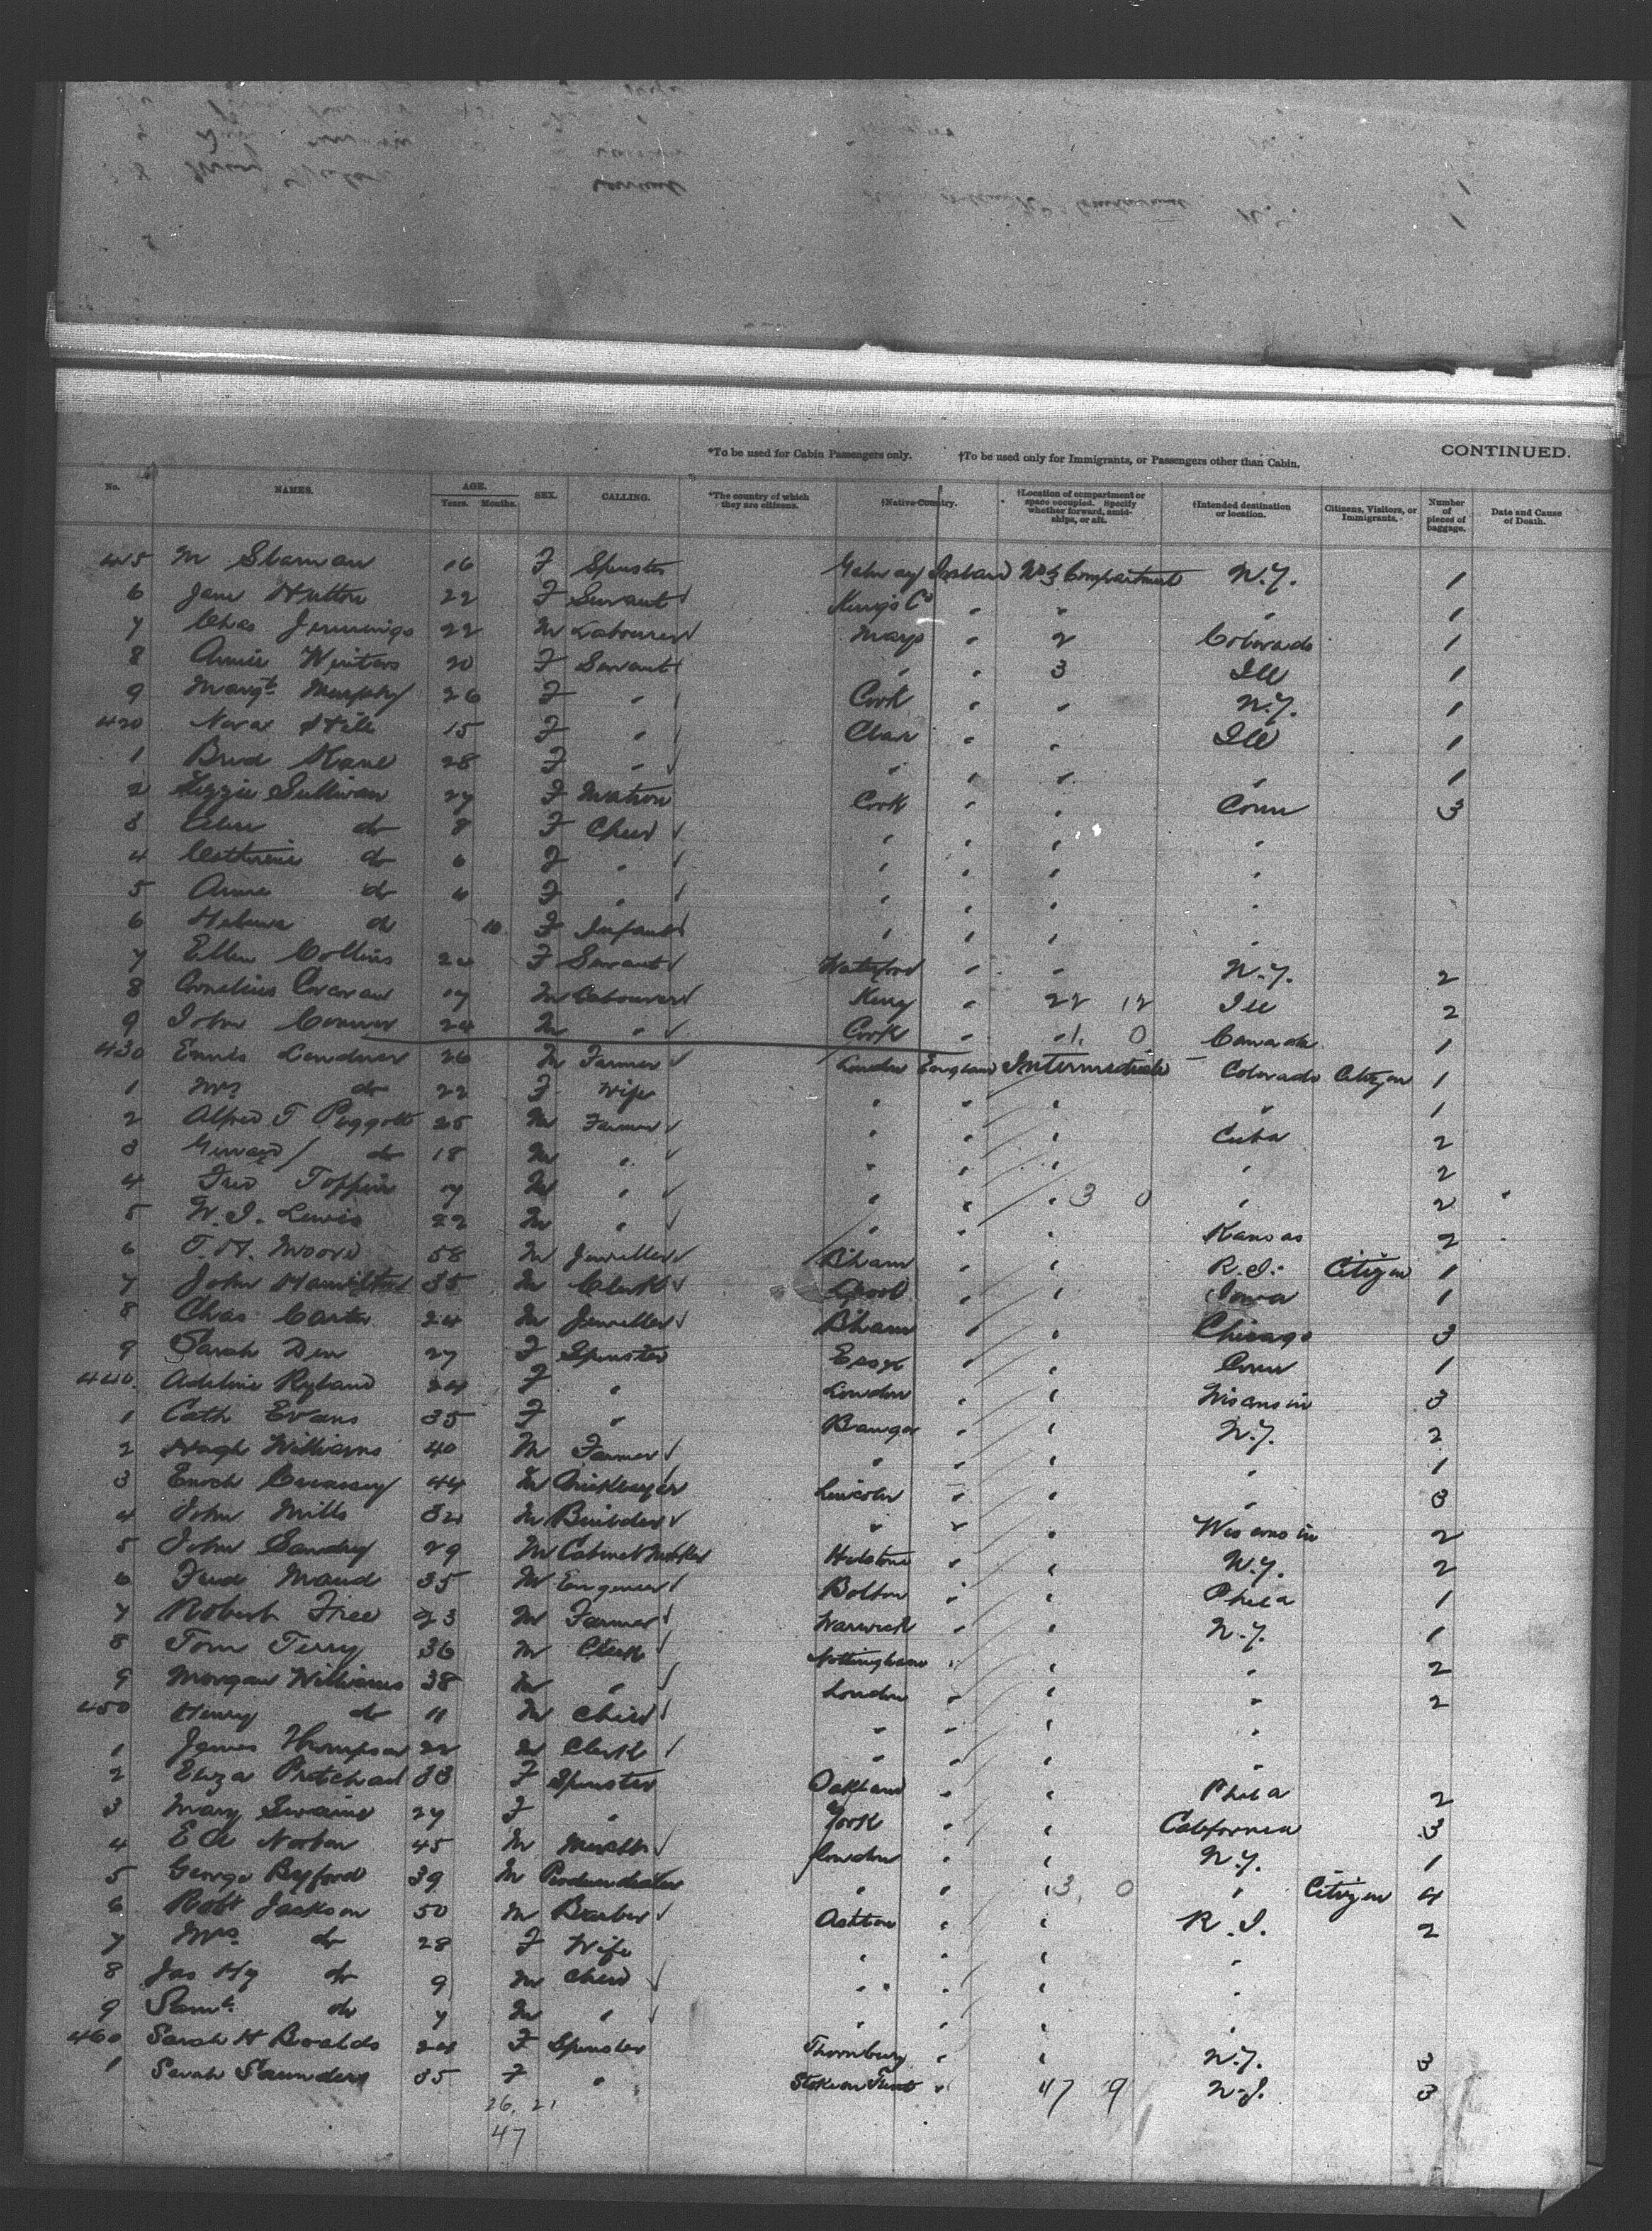 *To be used for Cabin Passengers only. †To be used only for Immigrants, or Passengers other than Cabin. CONTINUED.
No. NAMES. AGE. Years. Months. SEX. CALLING. *The country of which they are citizens. †Native Country. †Location of compartment or space occupied. Specify whether forward, amidships, or aft. †Intended destination or location. Citizens, Visitors, or Immigrants. Number of pieces of baggage. Date and Cause of Death.
415 M 16 F Spinster Galway Ireland No 3 Compartment N.Y. 1
6 Jane Hutton 22 F Servant Kings Co " " " 1
7 Chas Jennings 22 M Labourer Mayo " 2 Colorado 1
8 Annie Winters 20 F Servant " " 3 Ill 1
9 Margt Murphy 26 F " Cork " " N.Y. 1
420 Nora 15 F " Clare " " Ill 1
1 Brid Kane 28 F " " " " " 1
2 Lizzie Sullivan 27 F Matron Cork " " Conn 3
3 do 8 F Child " " " "
4 Catherine do 6 F " " " " "
5 Annie do 4 F " " " " "
6 Helena do 10 F Infant " " " "
7 Ellen Collins 20 F Servant Waterford " " N.Y. 2
8 Cornelius Corcoran 17 M Labourer Kerry " 22 12 Ill 2
9 John Connor 24 M " Cork " 1. 0 Canada 1
430 Ennis 26 M Farmer London England Intermediate Colorado Citizen 1
1 Mrs do 22 F Wife " " " " 1
2 Alfred T Piggott 25 M Farmer " " " Cuba 2
3 do 18 M " " " " " 2
4 Fred Toppin 17 M " " " " 3 0 " 2
5 W. J. Lewis 22 M " " " " Kansas 2
6 T. H. Moore 58 M Jeweller B'ham " " R.I. Citizen 1
7 John Hamilton 35 M Clerk L'pool " " Iowa 1
8 Chas Carter 24 M Jeweller B'ham " " Chicago 3
9 Sarah Dew 27 F Spinster Essex " " Conn 1
440 Adeline Ryland 24 F " London " " Wisconsin 3
1 Cath Evans 35 F " Bangor " " N.Y. 2
2 Hugh Williams 40 M Farmer " " " " 1
3 Enoch 44 M Bricklayer Lincoln " " " 3
4 John Mills 32 M Builder " " " Wisconsin 2
5 John Sandry 29 M Cabinet Maker Helstone " " N.Y. 2
6 Fred Maud 35 M Engineer Bolton " " Phila 1
7 Robert Free 23 M Farmer Warwick " " N.Y. 1
8 Tom Terry 36 M Clerk Nottingham " " " 2
9 Morgan Williams 38 M " London " " " 2
450 Henry do 11 M Child " " " "
1 James Thompson 22 M Clerk " " " "
2 Eliza Pritchard 33 F Spinster Oakland " " Phila 2
3 Mary Swaine 27 F " York " " California 3
4 E A Norton 45 M London " " N.Y. 1
5 George Byford 39 M " " " 3, 0 " Citizen 4
6 Robt Jackson 50 M Barber Ashton " " R.I. 2
7 Mrs do 28 F Wife " " " "
8 Jas Hy do 9 M Child " " " "
9 Saml do 7 M " " " " "
460 Sarah H 24 F Spinster Thornbury " " N.Y. 3
1 Sarah Saunders 35 F " Stoke on Trent " 47 9 N.J. 3
26. 21
47